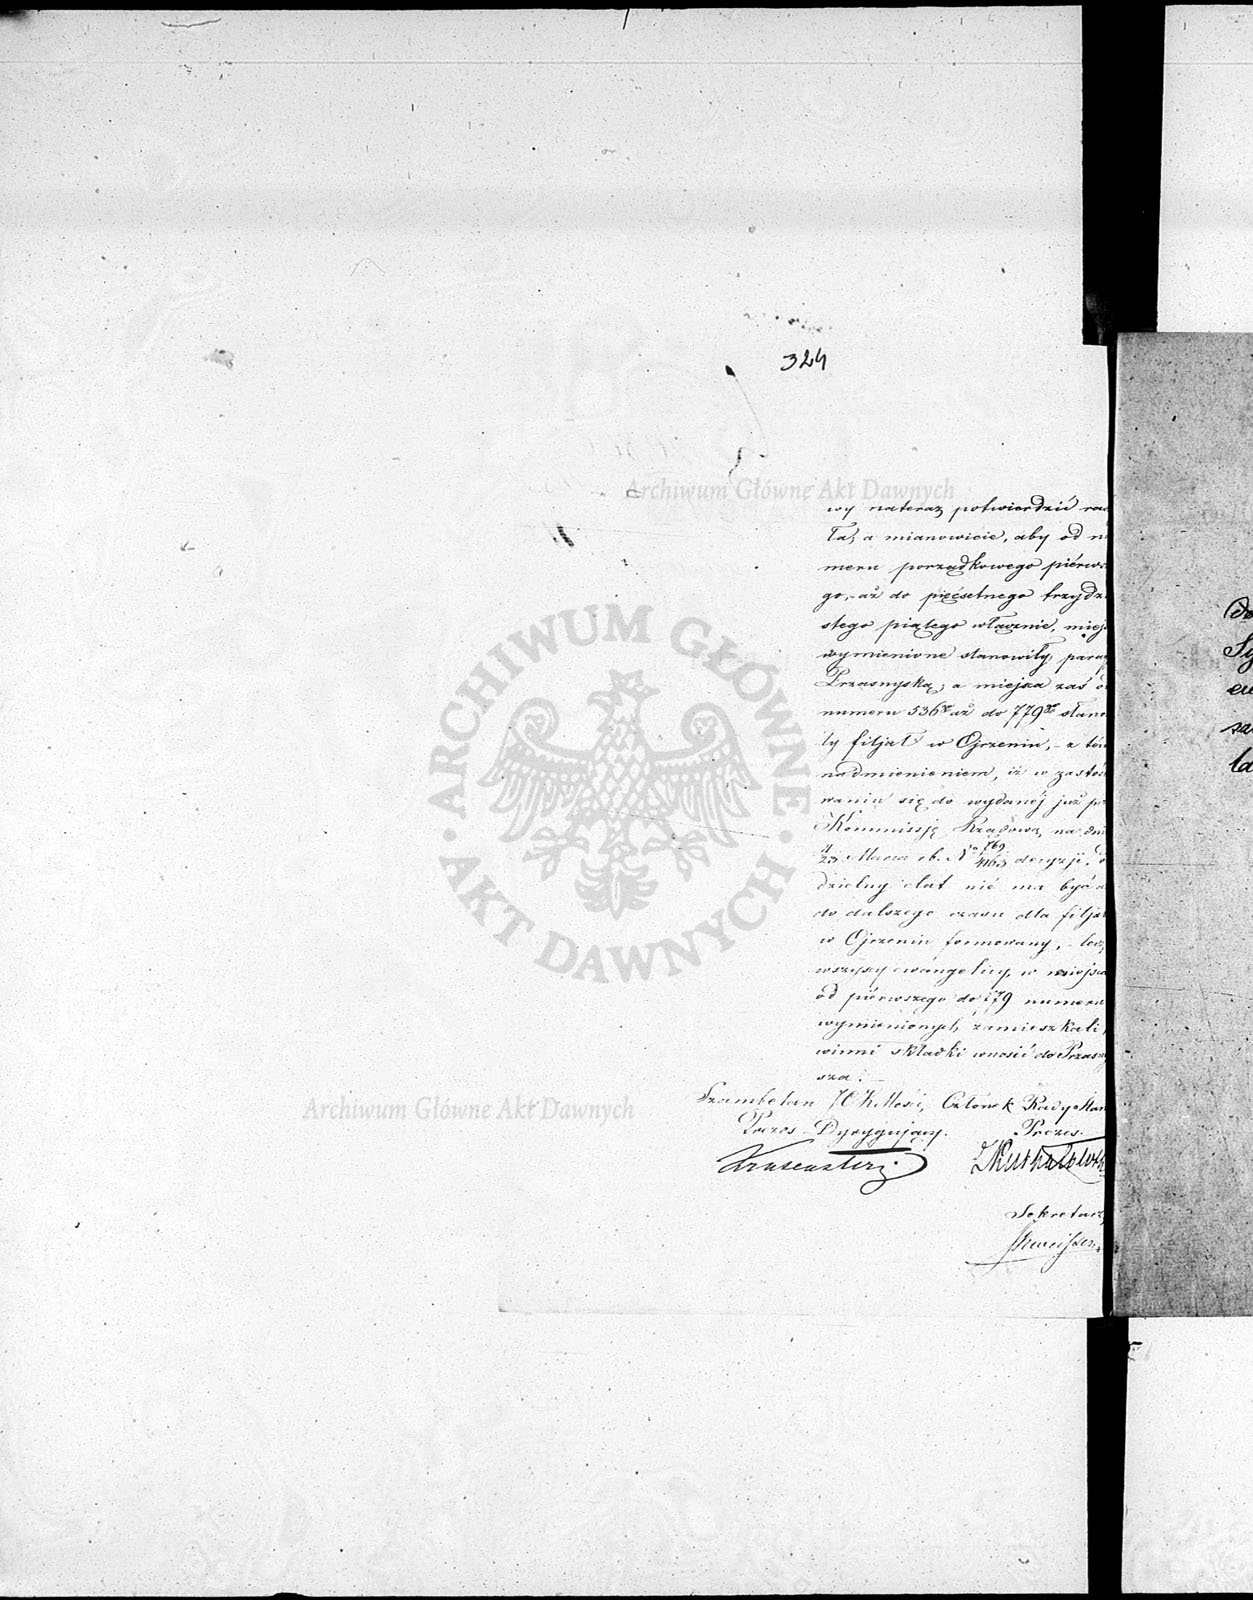 324
Archiwum Główne Akt Dawnych
wy nateraz potwierdzić ra
ła, a mianowicie, aby od n
meru porządkowego pierws
go, aż do pięćsetnego trzydz
stego piątego włącznie, miejs
wymienione stanowiły para
Przasnyską; a miejsca zaś o
numeru 536go aż do 779go stano
ły filjał w Ojrzeniu, - z tém
nadmienieniem, iż w zastoso
waniu się do wydanéj już pr
Kommissję Rządową na dni
11/23 Marca rb. No 769/4163 decyzji, o
dzielny etat nié ma być a
do dalszego czasu dla filja
w Ojrzeniu formowany, - lecz
wszyscy ewangelicy, w miejsca
od pierwszego do 779 numeru
wymienionych zamieszkali,
winni składki wnosić do Przasny
sza. -
Szambelan JCKMości, Członek Rady Stan
Prezes Dyrygujący. Prezes.
Krusenstern.
Sekretarz
ARCHIWUM GŁÓWNE
AKT DAWNYCH
Archiwum Główne Akt Dawnych